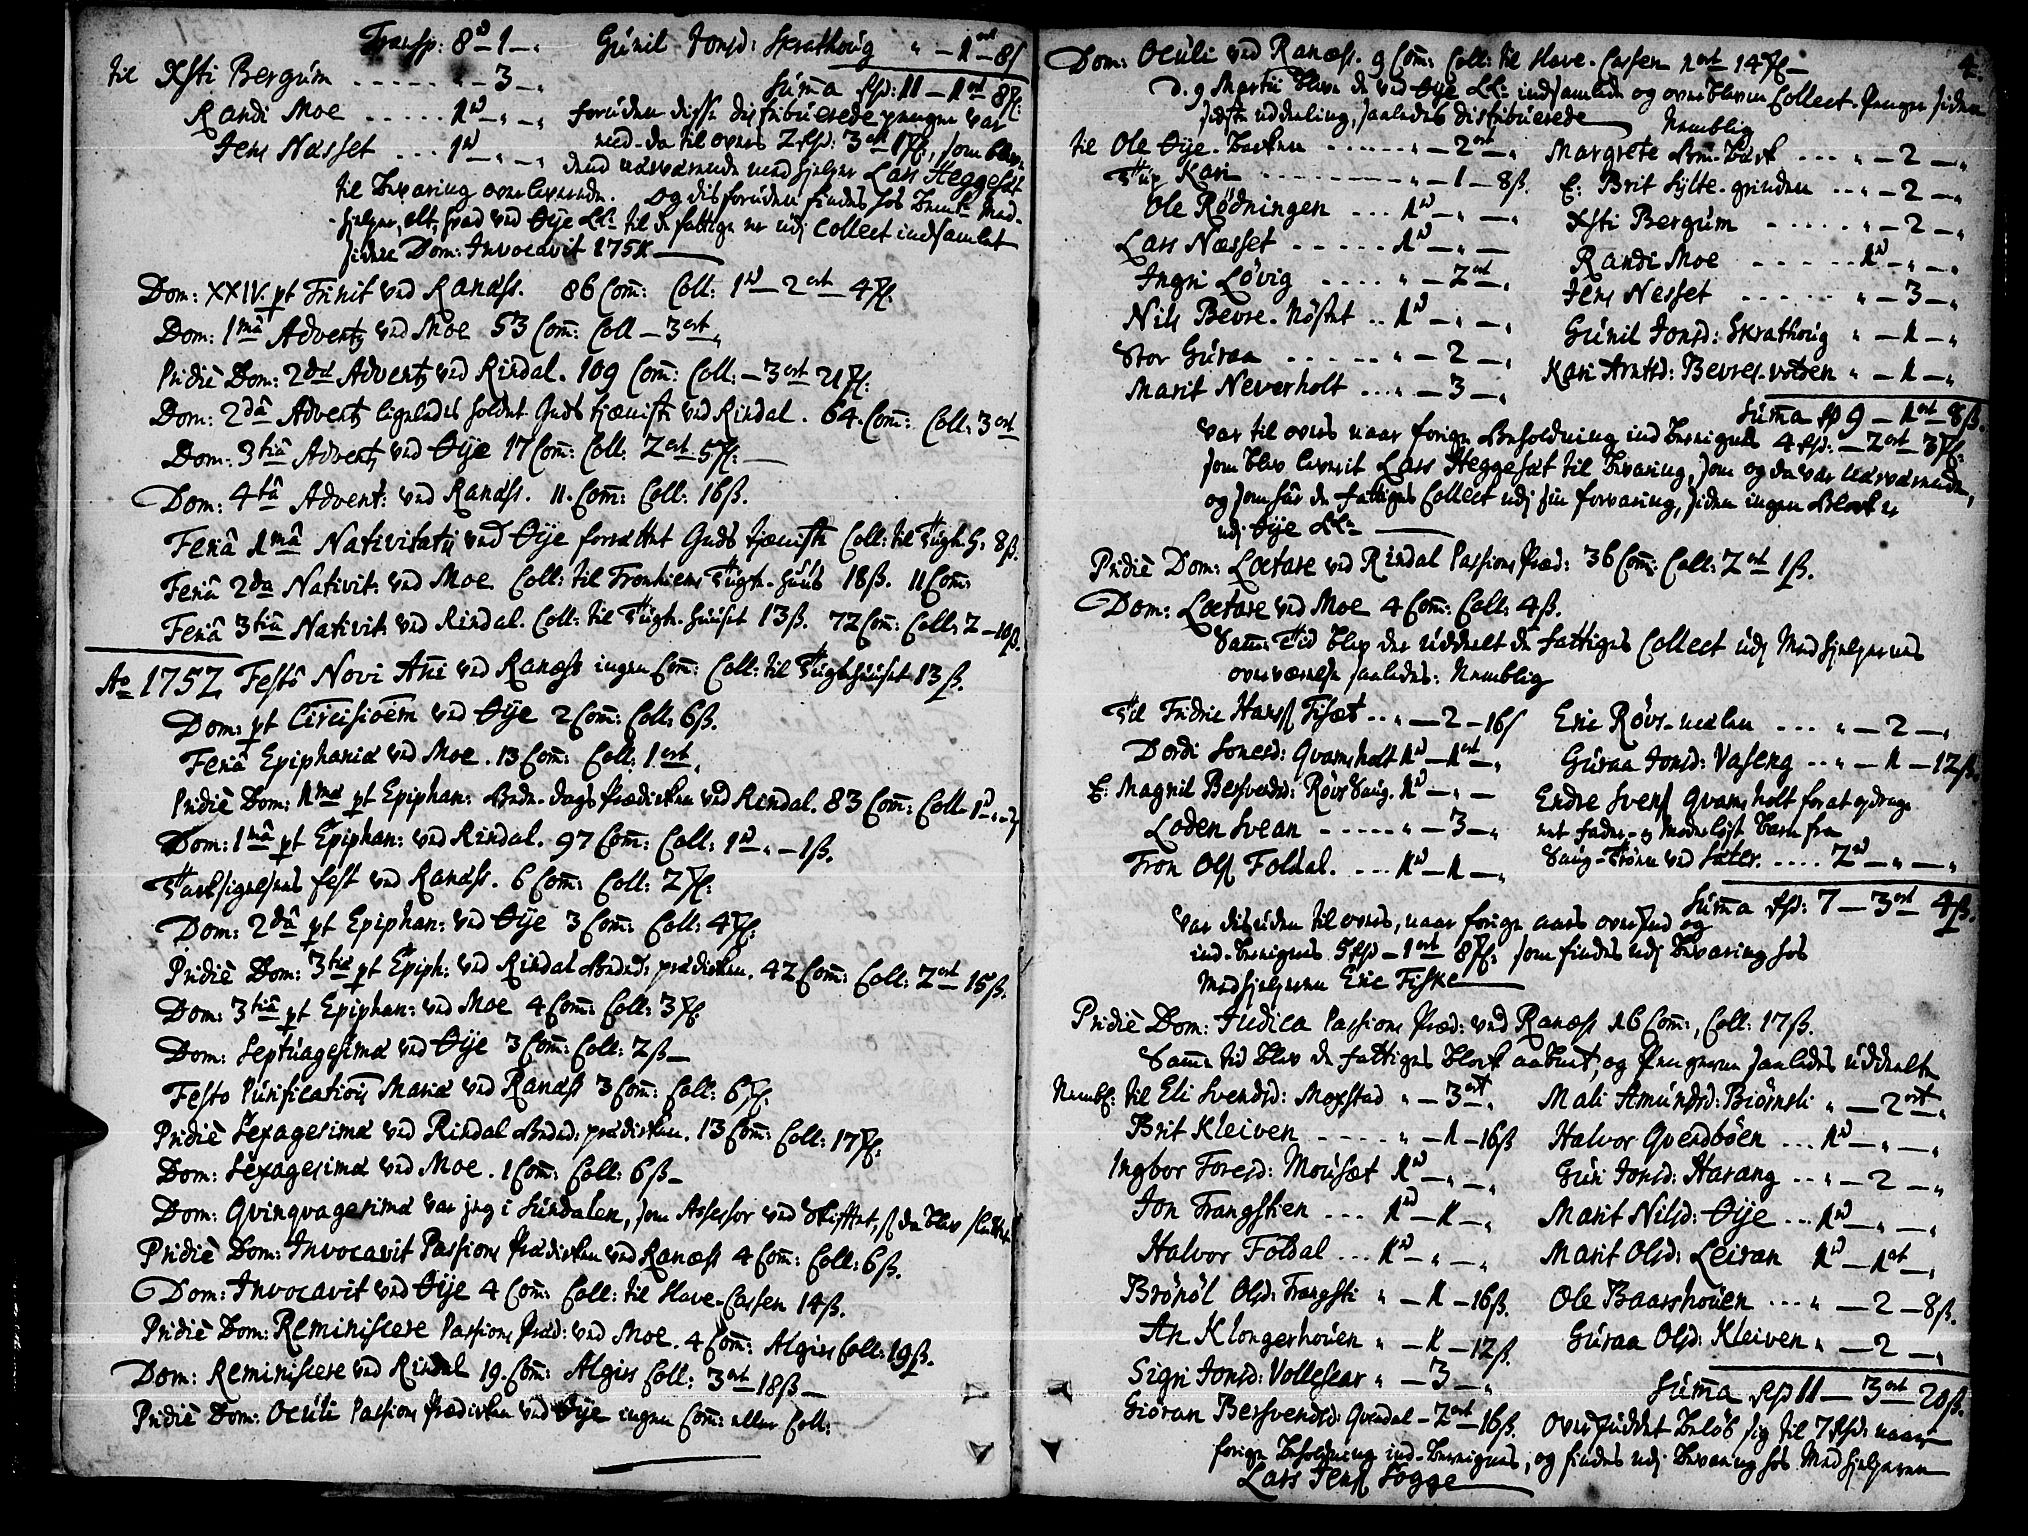 Transp: 8 - 1 - „
til Xsti Bergum ...... „ - 3 - „
Randi Moe ..... 1 - „ - „
Jens Næsset ... 1 - „ - „
Gunil Jonsd: Skrathoug „ - 1 ort - 8 ß
Suma Rd: 11 - 1 ort 8 ß:
foruden disse distribuerede penge var
da til overs 2 Rd: 3 ort 1 ß, som blev
dend nærværende medhjelper Lars Heggeset
til bevaring overleverede. Og disforuden findes hos bemte Med-
hjelper, alt, hvad ved Øÿe K: til de fattige er udj Collect indsamlet
siden Dom: Invocavit 1751.
Dom: XXIV. pt Trinit ved Ranæss. 86 Com: Coll: 1 - 2 ort - 4 ß.
Dom: 1mâ Advent ved Moe 53 Com: Coll - 3 ort „
Pridiè Dom: 2dâ Advent ved Rindal. 109 Com: Coll: - 3 ort 21 ß:
Dom: 2dâ Advent ligeledes holdet Guds tjeniste ved Rindal. 64. Com: Coll: 3 ort
Dom: 3tiâ Advent ved Øÿe 17 Com: Coll: 2 ort 5 ß:
Dom: 4tâ Advent: ved Ranæss. 11. Com: Coll: 16 ß.
Feriâ 1mâ Nativitatis ved Øÿe forrettet Guds tjeniste Coll: til Tugth. H: 8 ß.
Feriâ 2da Nativit: ved Moe Coll: til Tronhiems Tugth-Huus 18 ß. 11 Com:
Feriâ 3tiâ Nativit: ved Rindal. Coll: til Tugth-Huuset 13 ß. 72 Com: Coll: 2 - 10 ß.
Ao 1752 Festô Novi Añi ved Ranæss ingen Com: Coll: til Tugthhuuset 13 ß.
Dom: pt Circisioêm ved Øÿe 2 Com: Coll: 6 ß.
Feriâ Epiphaniæ ved Moe. 13 Com: Coll: 1 ort „
Pridiè Dom: 1mâ pt Epiphan: Bede-dags Prædicken ved Rindal. 83 Com: Coll. 1 „ - 7
Dom: 1mâ pt Epiphan: ved Rindal. 97 Com: Coll: 1 „ - 1 ß.
Tacksigelses fest ved Ranæss. 6 Com: Coll: 2 ß:
Dom: 2dâ pt Epiphan: ved Øÿe 3 Com: Coll: 4 ß.
Pridiè Dom: 3tiâ pt Epiph: ved Rindal Beded: prædicken. 42 Com: Coll: 2 ort 15 ß.
Dom: 3tiâ pt Epiphan: ved Moe 4 Com: Coll: 3 ß
Dom: Septuagesimæ ved Øÿe 3 Com: Coll: 2 ß -
Festo Purificatiôis Mariæ ved Ranæss 3 Com: Coll: 6 ß.
Pridiè Sexagesimæ ved Rindal Beded: prædicken. 13 Com: Coll: 17 ß.
Dom: Sexagesimæ ved Moe. 1 Com: Coll: 6 ß -
Dom: Qvinqvagesimæ var jeg i Sundalen, som Assessor ved Skifftet, der blev
Pridiè Dom: Invocavit Passions Prædicken ved Ranæss 4 Com: Coll: 6 ß.
Dom: Invocavit ved Øÿe 4 Com: Coll: til Slave-Cassen 14 ß.
Pridiè Dom: Reminiscere Passions Præd: ved Moe. 4 Com: Algirs Coll: 19 ß.
Dom: Reminiscere ved Rindal 19. Com: Algirs Coll: 3 ort 18 ß -
Pridiè Dom: Oculi Passions Prædicken ved Øÿe ingen Com: eller Coll:
4.
Dom: Oculi ved Ranæss. 9 Com: Coll: til Slave-Cassen 1 ort 14 ß -
D. 9 Martii blev de ved Øÿe K: indsamlede og overblevne Collect-Penger siden
sidste uddeeling, saaledes distribuerede Nemblig
til Ole Øÿe-backen ...... „ - 2 ort - „
Kari .......... „ - 1 - 8 ß.
Ole Rødningen ... 1 - „ - „
Lars Næsset ...... 1 - „ -
Ingri Løvig .... „ - 2 ort - „
Nils Bevre-Nøstet .. 1 - „ - „
Stor Guraa ...... „ - 2 - „
Marit Neverholt .... „ - 3 - „
Margrete ... „ - 2 - „
E: Brit Sylte-grinden .. „ - 2 - „
Xsti Bergum ..... „ - 2 - „
Randi Moe ...... 1 - „ - „
Jens Nesset ...... „ - 3 - „
Gunil Jonsd: Skrathoug „ - 1 - „
Kari Arntsd: Bevre-volden „ - 1 - „
Suma Rd 9 - 1 ort 8 ß.
Var til overs naar forige Beholdning ind-bereignes 4 Rd: - 2 ort - 3 ß:
som blev leverit Lars Heggeset til bevaring, som og da var nærværende,
og som har de fattiges Collect udj sin forvaring, siden ingen Block er
udj Øÿe K:
Pridiè Dom: Lætare ved Rindal Passions Præd: 36 Com: Coll: 2 ort 1 ß.
Dom: Lætare ved Moe 4 Com: Coll: 4 ß.
Same Tid blev der uddeelt de fattiges Collect udj Medhjelpernes
overværelse saaledes: Nemblig
Til Fridric Hanss Fiset .. „ - 2 - 16 ß
Dordi Jonesd: Qvamsholt 1 - 1 ort - „
E: Magnil Bersvendsd: Røvs Saug. 1 - „ -
Loden Svean ...... „ - 3 - „
Tron Ols Foldal. .... 1 - 1 - „
Eric Røvs-nealen .... „ - 2 - „
Guraa Jonsd: Vaseng .. „ - 1 - 12 ß.
Endre Svens Qvamsholt for at opdrage
et fader- og Moderløst barn fra
Saug-Trøen ved Sæter. .... 2 - „ - „
Suma Rd: 7 - 3 ort - 4 ß.
Var desuden til overs, naar forige aars overskud og
ind-bereignes 5 Rd - 1 ort 8 ß. som findes udj bevaring hos
Medhjelperen Eric Fiske
Pridiè Dom: Judica Passions Præd: ved Ranæss 16 Com:, Coll: 17 ß.
Same tid blev de fattiges block aabnet, og Pengene saaledes uddeelte
Nembl: til Eli Svendsd: Moxstad „ - 3 ort „
Brit Kleiven .... „ - 1 - 16 ß
Ingbor Toresd: Mouset 1 - „ - „
Jon Trangstien ... 1 - 1 - „
Halvor Foldal ... 1 - „ - „
Brønøl Olsd: Trangsti „ - 1 - 16 ß.
An Klongerhouen „ - 1 - 12 ß.
Sigri Jonsd: Vollesear „ - 3 - „
Giøran Bersvendsd: Qvendal - 2 ort - 16 ß.
Mali Amundsd: Biørnsli „ - 2 ort „
Halvor Qvendbøen ... 1 - „ - „
Guri Jonsd: Harang .. „ - 2 - „
Marit Nilsd: Øÿe ... 1 - „ - „
Marit Olsd: Leiran 1 - 1 ort - „
Ole Baarshouen ... „ - 2 - 8 ß.
Guraa Olsd: Kleiven „ - 2 - „
Suma Rd 11 - 3 ort - 20 ß.
Overskuddet beløb sig til 7 Rd: naar
forige beholdning ind-bereignes, og findes udj bevaring hos Medhjelperen
Lars Jens Fogge